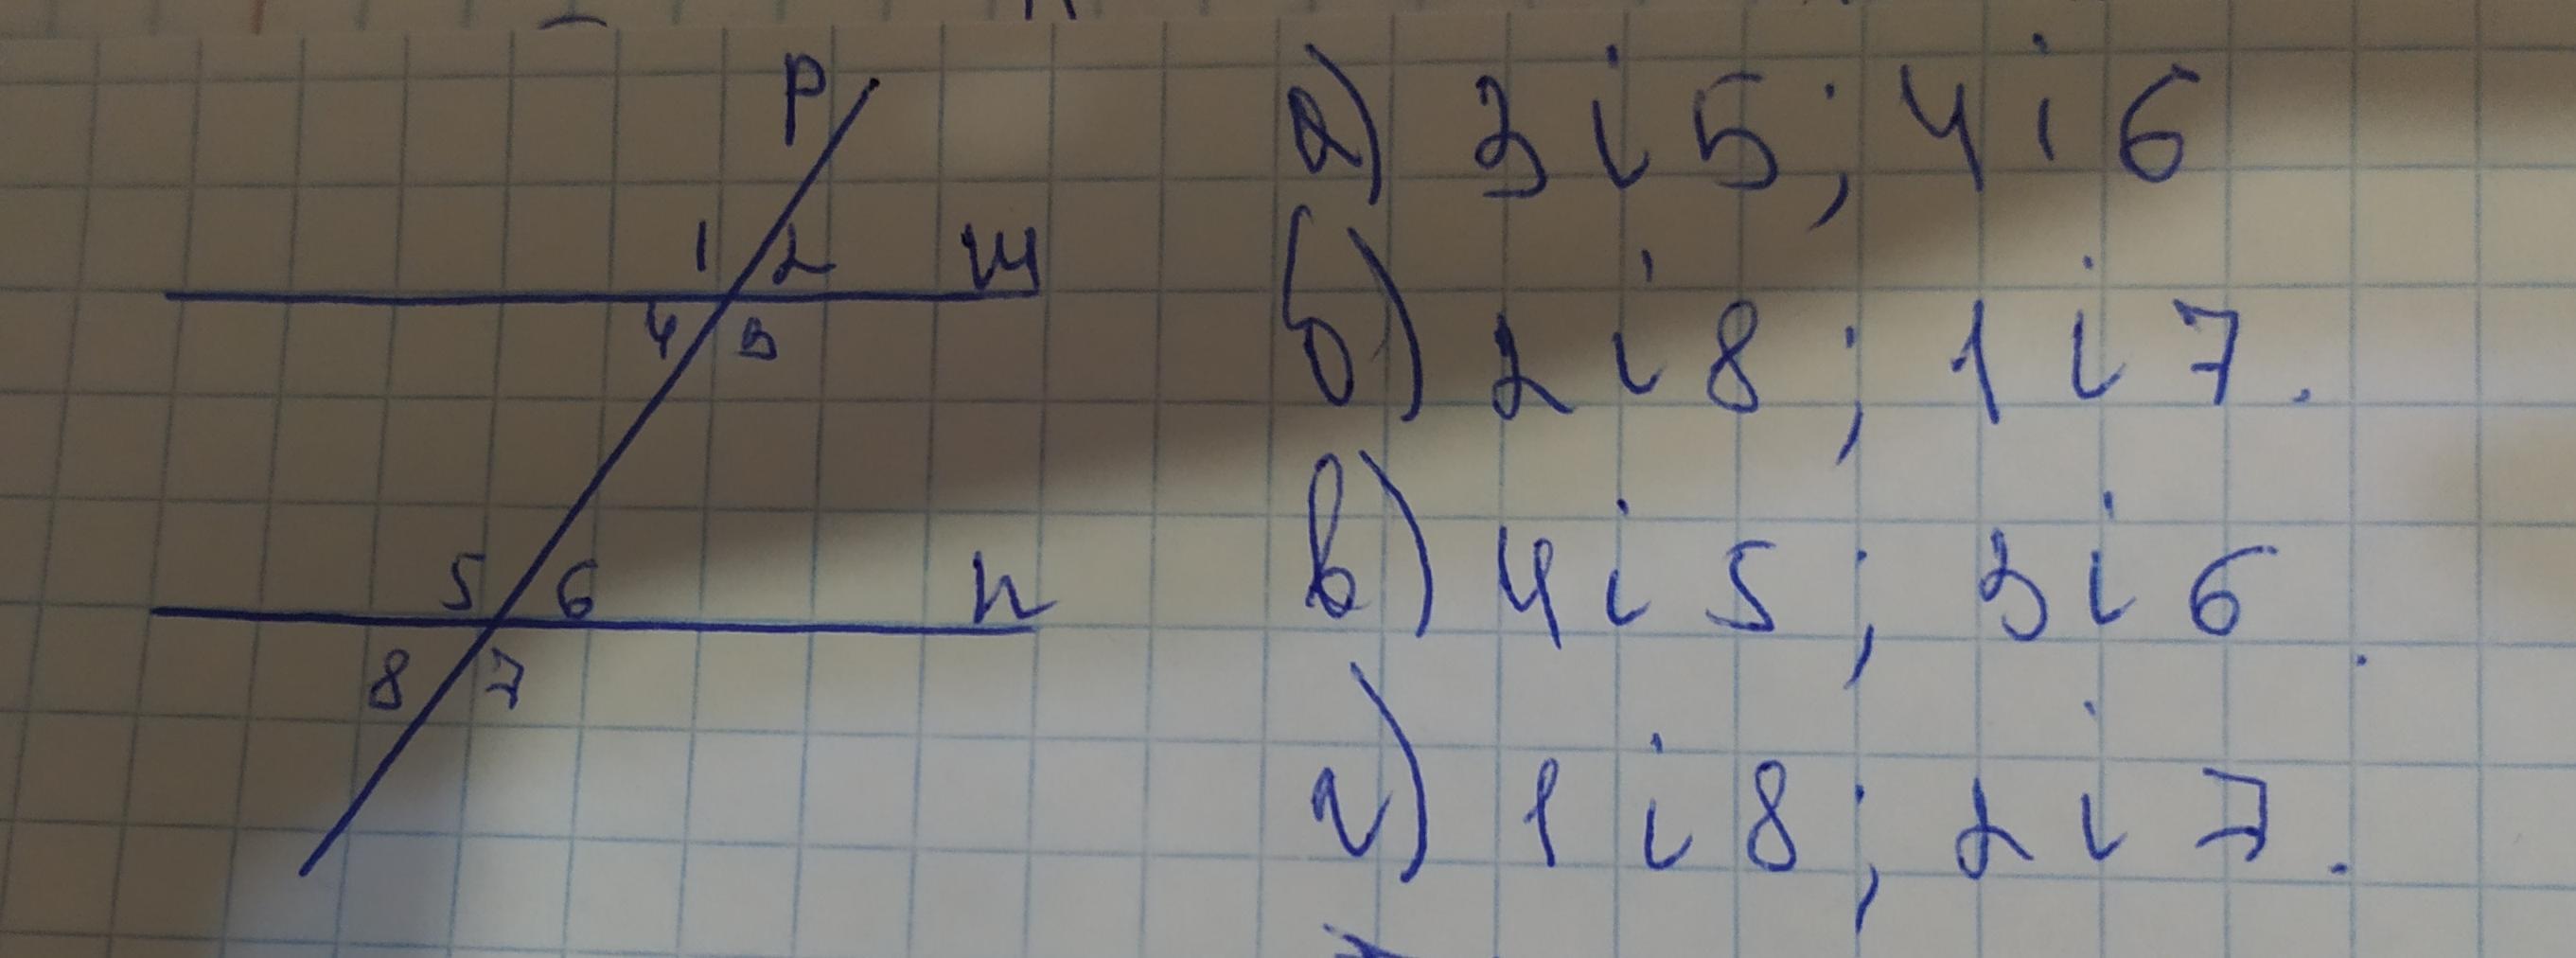 P
1 2 m
4 3
5 6 n
8 7
а) 3 і 5; 4 і 6
б) 2 і 8; 1 і 7.
в) 4 і 5; 3 і 6.
г) 1 і 8; 2 і 7.